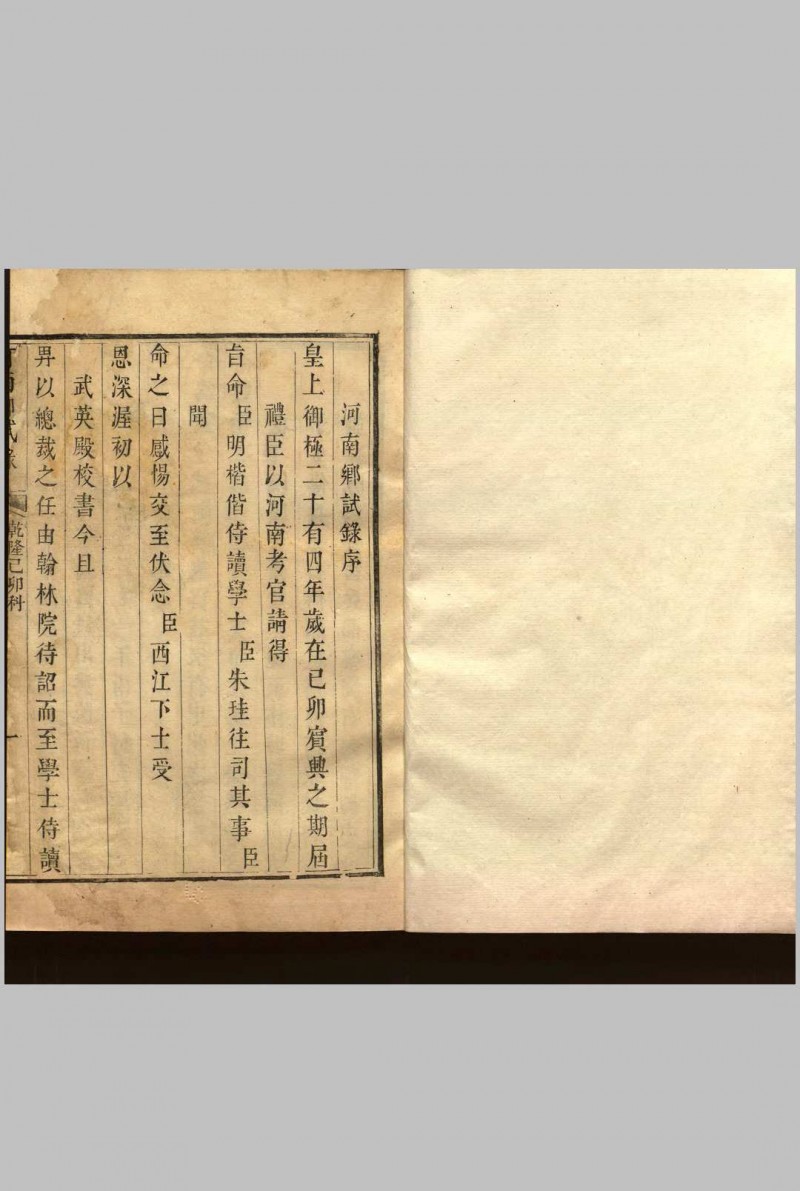 河南鄉試錄序
皇上御極二十有四年歲在己卯賓興之期屆
禮臣以河南考官請得
旨命臣明楷偕侍讀學士臣朱珪往司其事臣
聞
命之日感惕交至伏念臣西江下士受
恩深渥初以
武英殿校書今且
畀以總裁之任由翰林院待詔而至學士侍讀
河南鄉試錄
乾隆己卯科
一